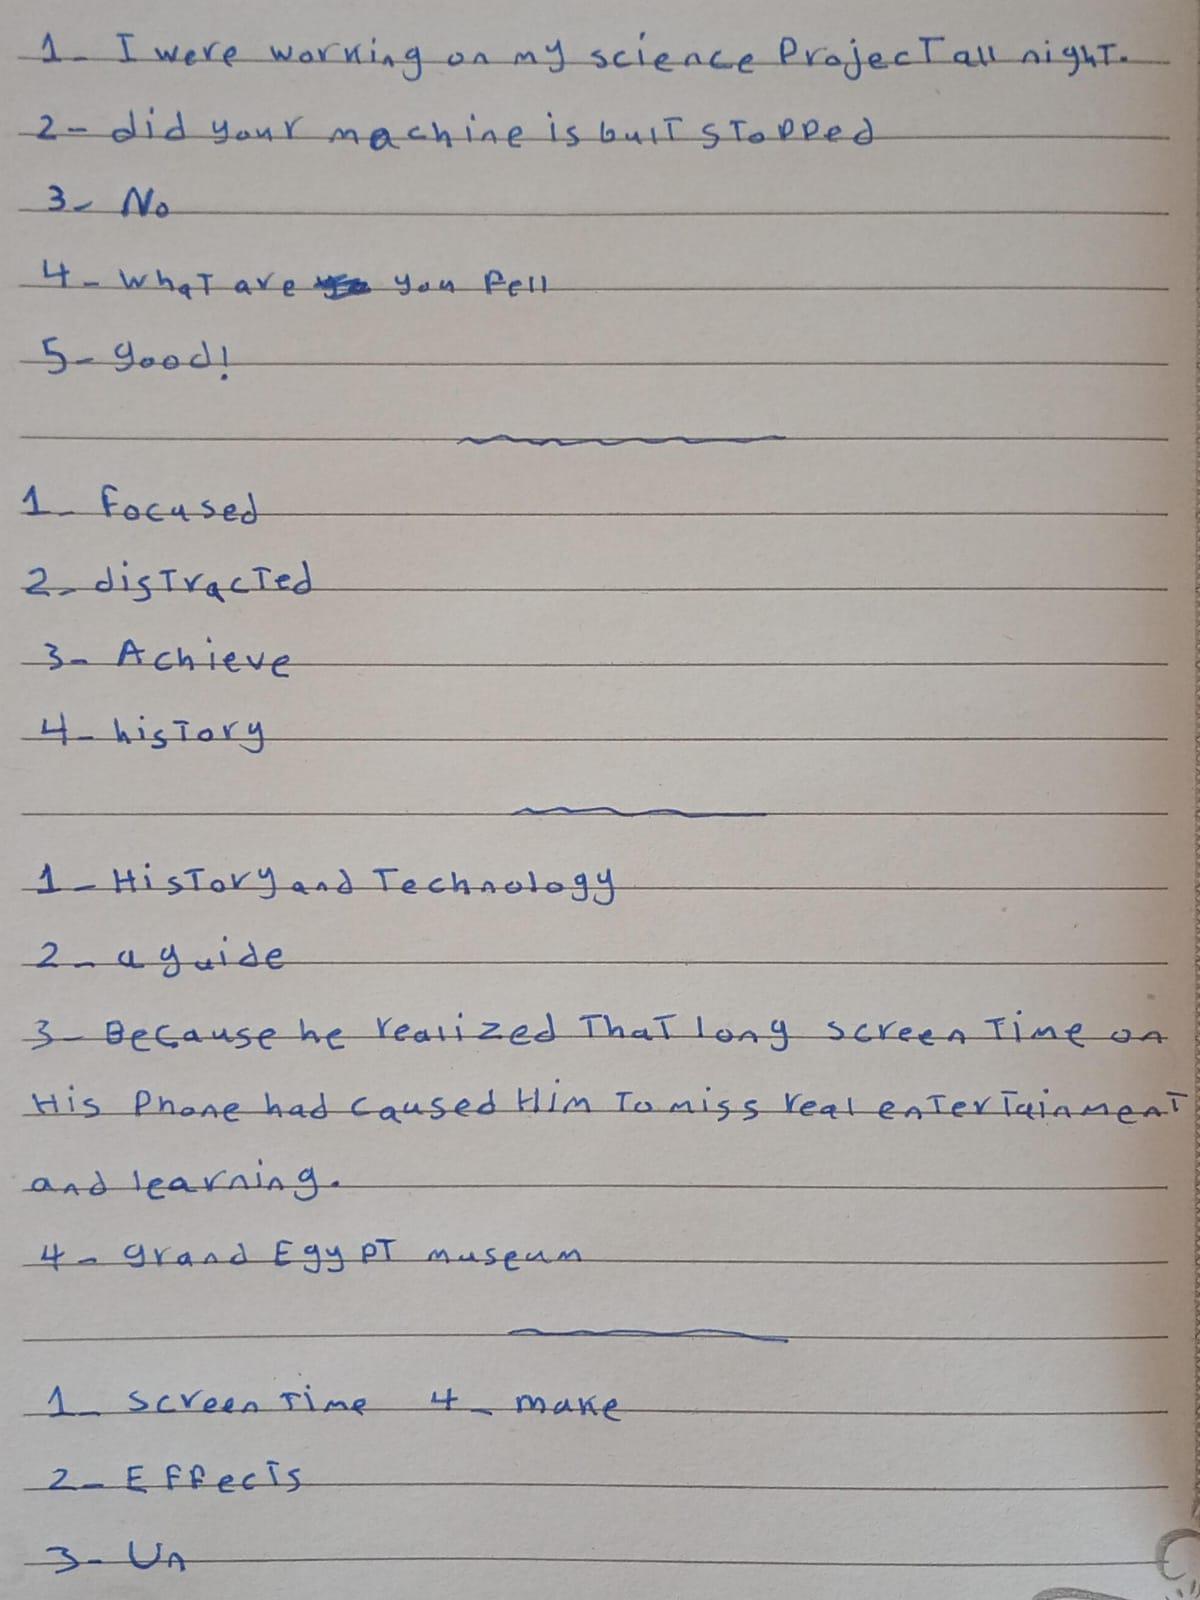 1- I were working on my science Project all night.
2- did your machine is built stopped
3- No
4- What are you fell
5- good!
1- Focused
2- distracted
3- Achieve
4- history
1- History and Technology
2- a guide
3- Because he realized That long screen Time on
His Phone had caused Him To miss real entertainment
and learning.
4- grand Egypt museum
1- screen Time 4- make
2- Effects
3- Un